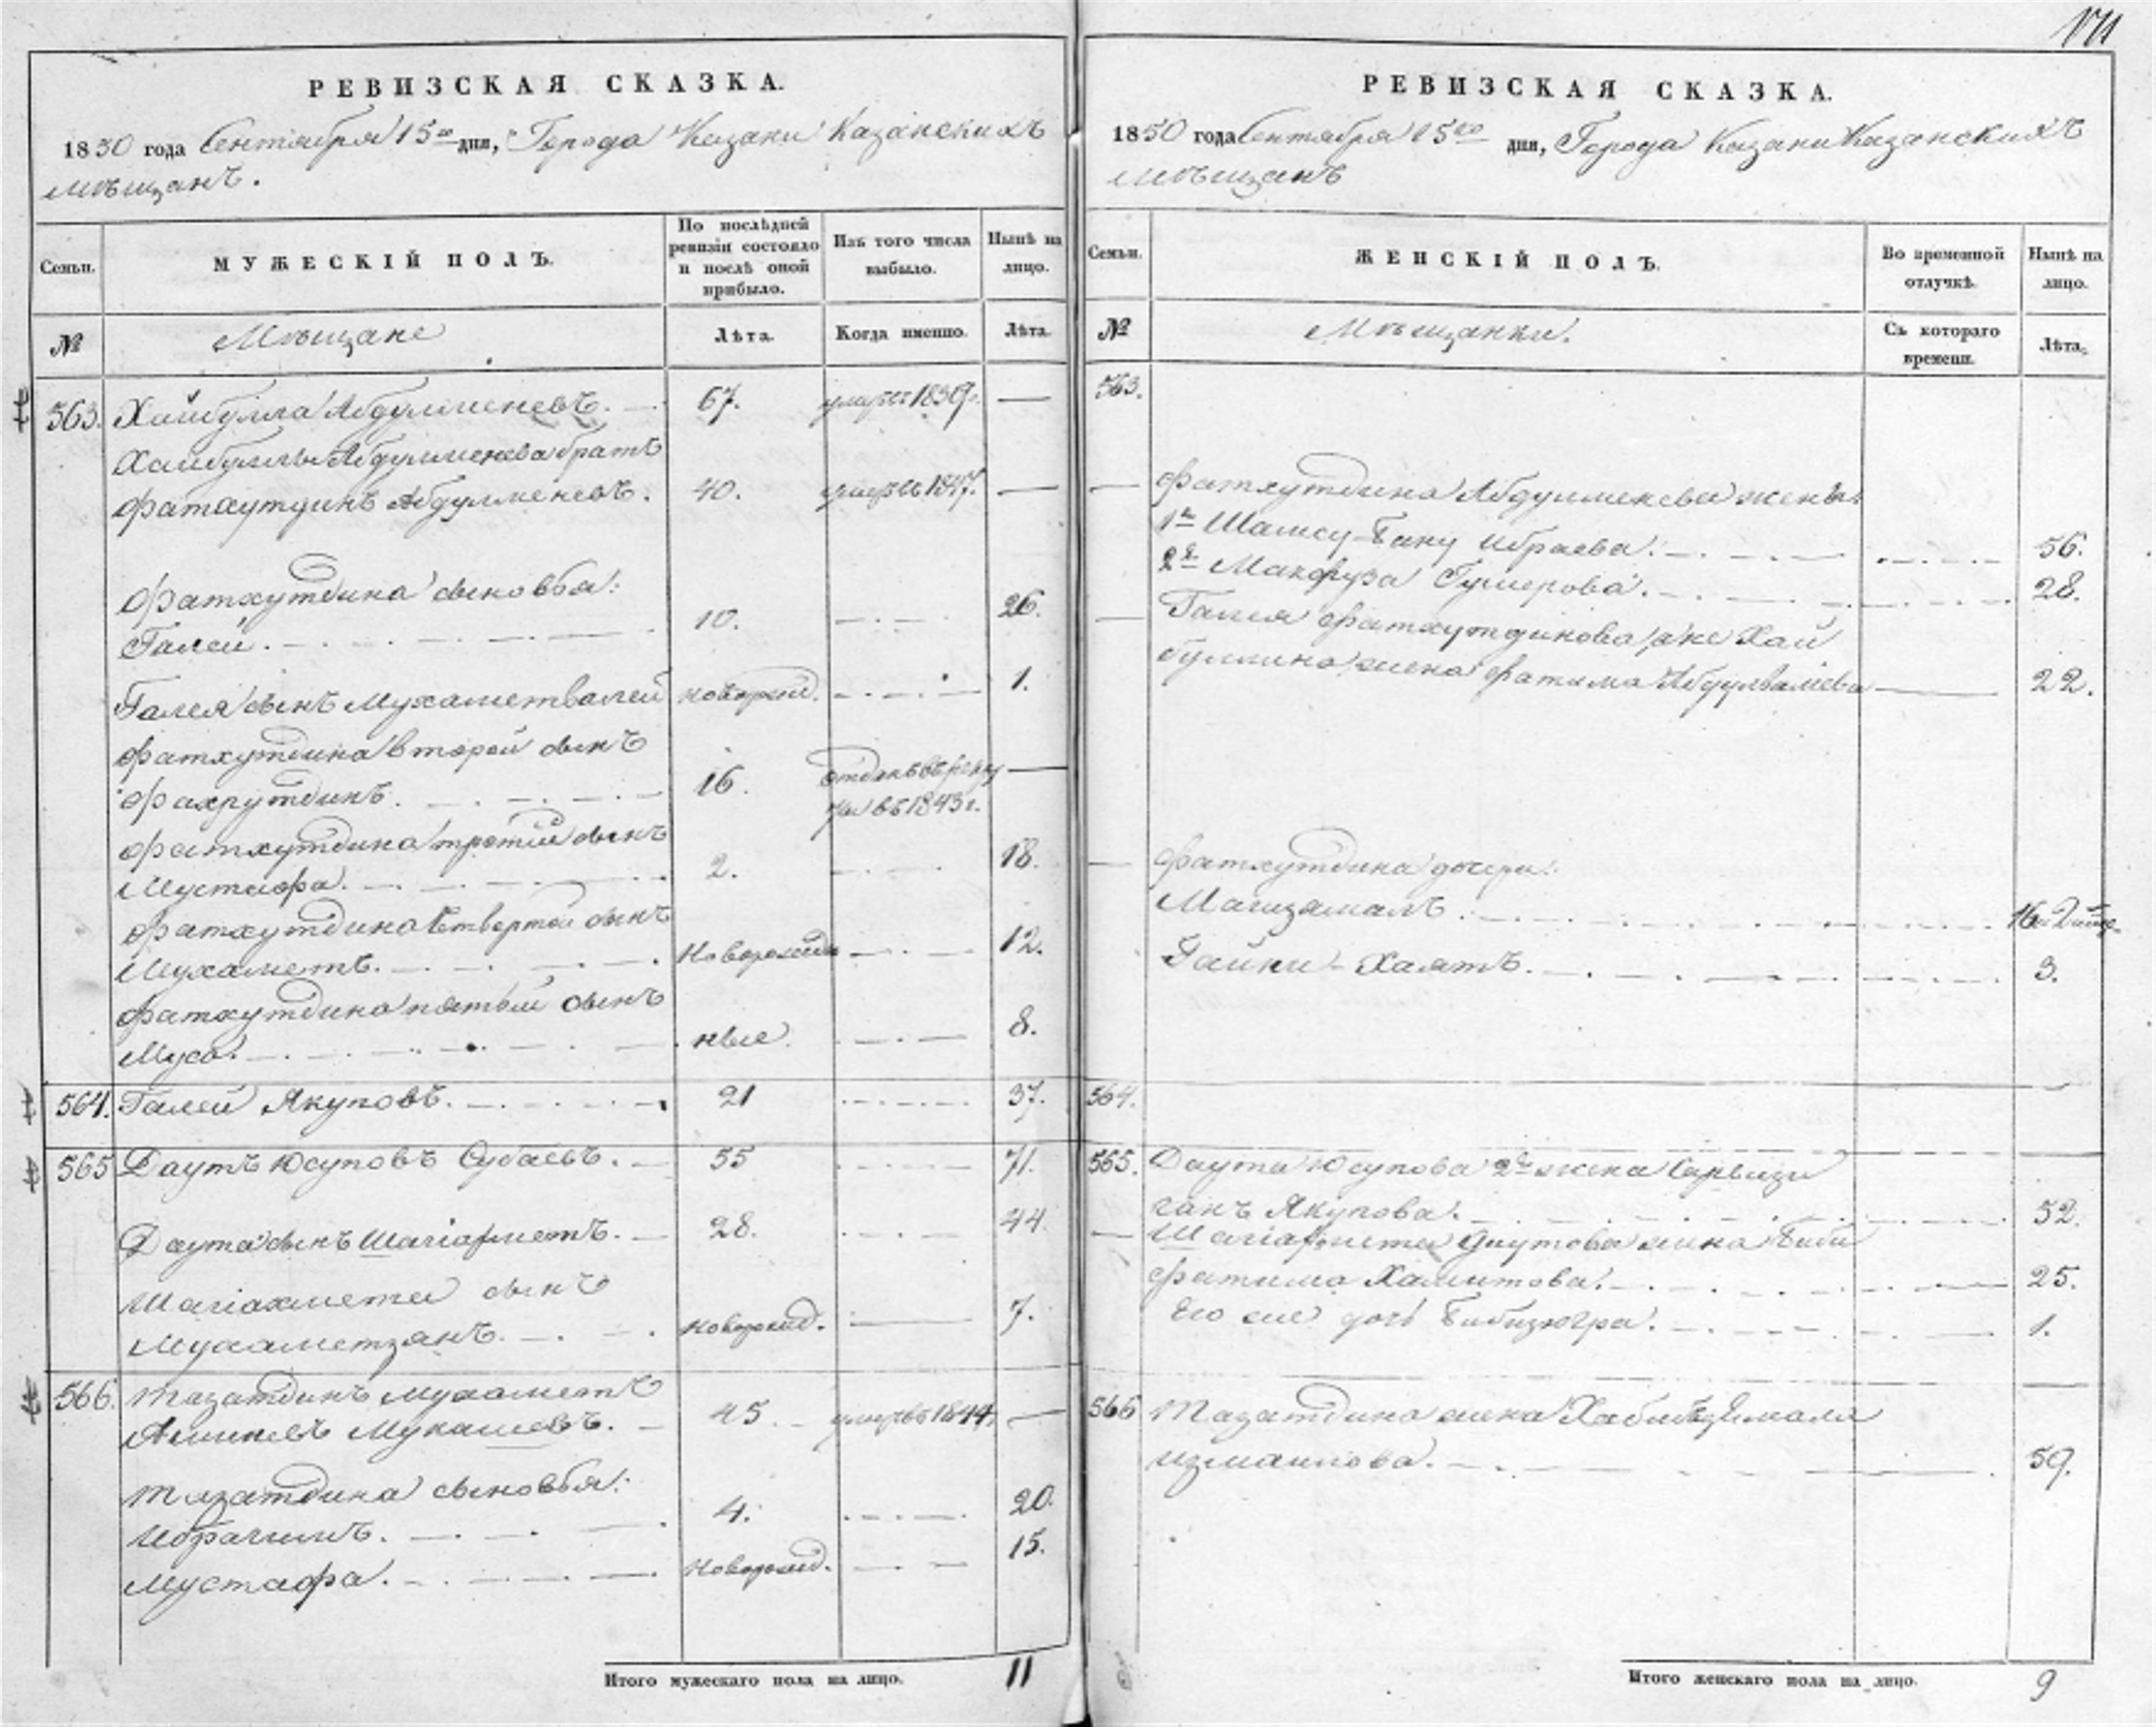 РЕВИЗСКАЯ СКАЗКА.
1850 года Сентября 15го дня, Города Казани Казанскихъ
мѣщанъ.
Семьи.
МУЖЕСКІЙ ПОЛЪ.
По послѣдней
ревизіи состояло
и послѣ оной
прибыло.
Изъ того числа
выбыло.
Нынѣ на
лицо.
№
Мѣщане
Лѣта.
Когда именно.
Лѣта.
563. Хайбулла Абдулменевъ. 67. умеръ 1839г. —
Хайбуллы Абдулменева братъ
Фатхутдинъ Абдулменевъ. 40. умеръ 1847. —
Фатхутдина сыновья:
Галей. 10. 26.
Галея сынъ Мухаметвалей новорожд. 1.
Фатхутдина второй сынъ
Фахрутдинъ. 16. отданъ въ рекру
ты въ 1843 г. —
Фатхутдина третій сынъ
Мустафа. 2. 18.
Фатхутдина четвертой сынъ
Мухаметъ. Новорожден 12.
Фатхутдина пятый сынъ
Муса. ные. 8.
564. Галей Якуповъ. 21 37.
565 Даутъ Юсуповъ Субаевъ. 55 71.
Даута сынъ Шагіахметъ. 28. 44
Шагіахмета сынъ
Мухаметзянъ. новорожд. 7.
566. Тазатдинъ Мухаметъ
Аминевъ Мукашевъ. 45. умеръ 1844. —
Тазатдина сыновья:
Ибрагимъ. 4. 20.
Мустафа. Новорожд. 15.
Итого мужескаго пола на лицо. 11
РЕВИЗСКАЯ СКАЗКА.
1850 года Сентября 15го дня, Города Казани Казанскихъ
мѣщанъ
Семьи.
ЖЕНСКІЙ ПОЛЪ.
Во временной
отлучкѣ.
Нынѣ на
лицо.
№
Мѣщанки.
Съ котораго
времени.
Лѣта.
563.
— Фатхутдина Абдулменева жены:
1я Шамсу-Бану Ибраева. 56.
2я Махфуза Гумерова. 28.
— Галея Фатхутдинова, а не Хай
буллина жена Фатима Абдулвалiева 22.
— Фатхутдина дочери:
Магизамалъ. 16
Гайни-Хаятъ. 3.
564.
565. Даута Юсупова 2я жена
Якупова. 52.
— Шагіахмета Даутова жена Биби
фатима Хамитова. 25.
Его же дочь Бибизюгра. 1.
566 Тазатдина жена
Измаилова. 59.
Итого женскаго пола на лицо. 9